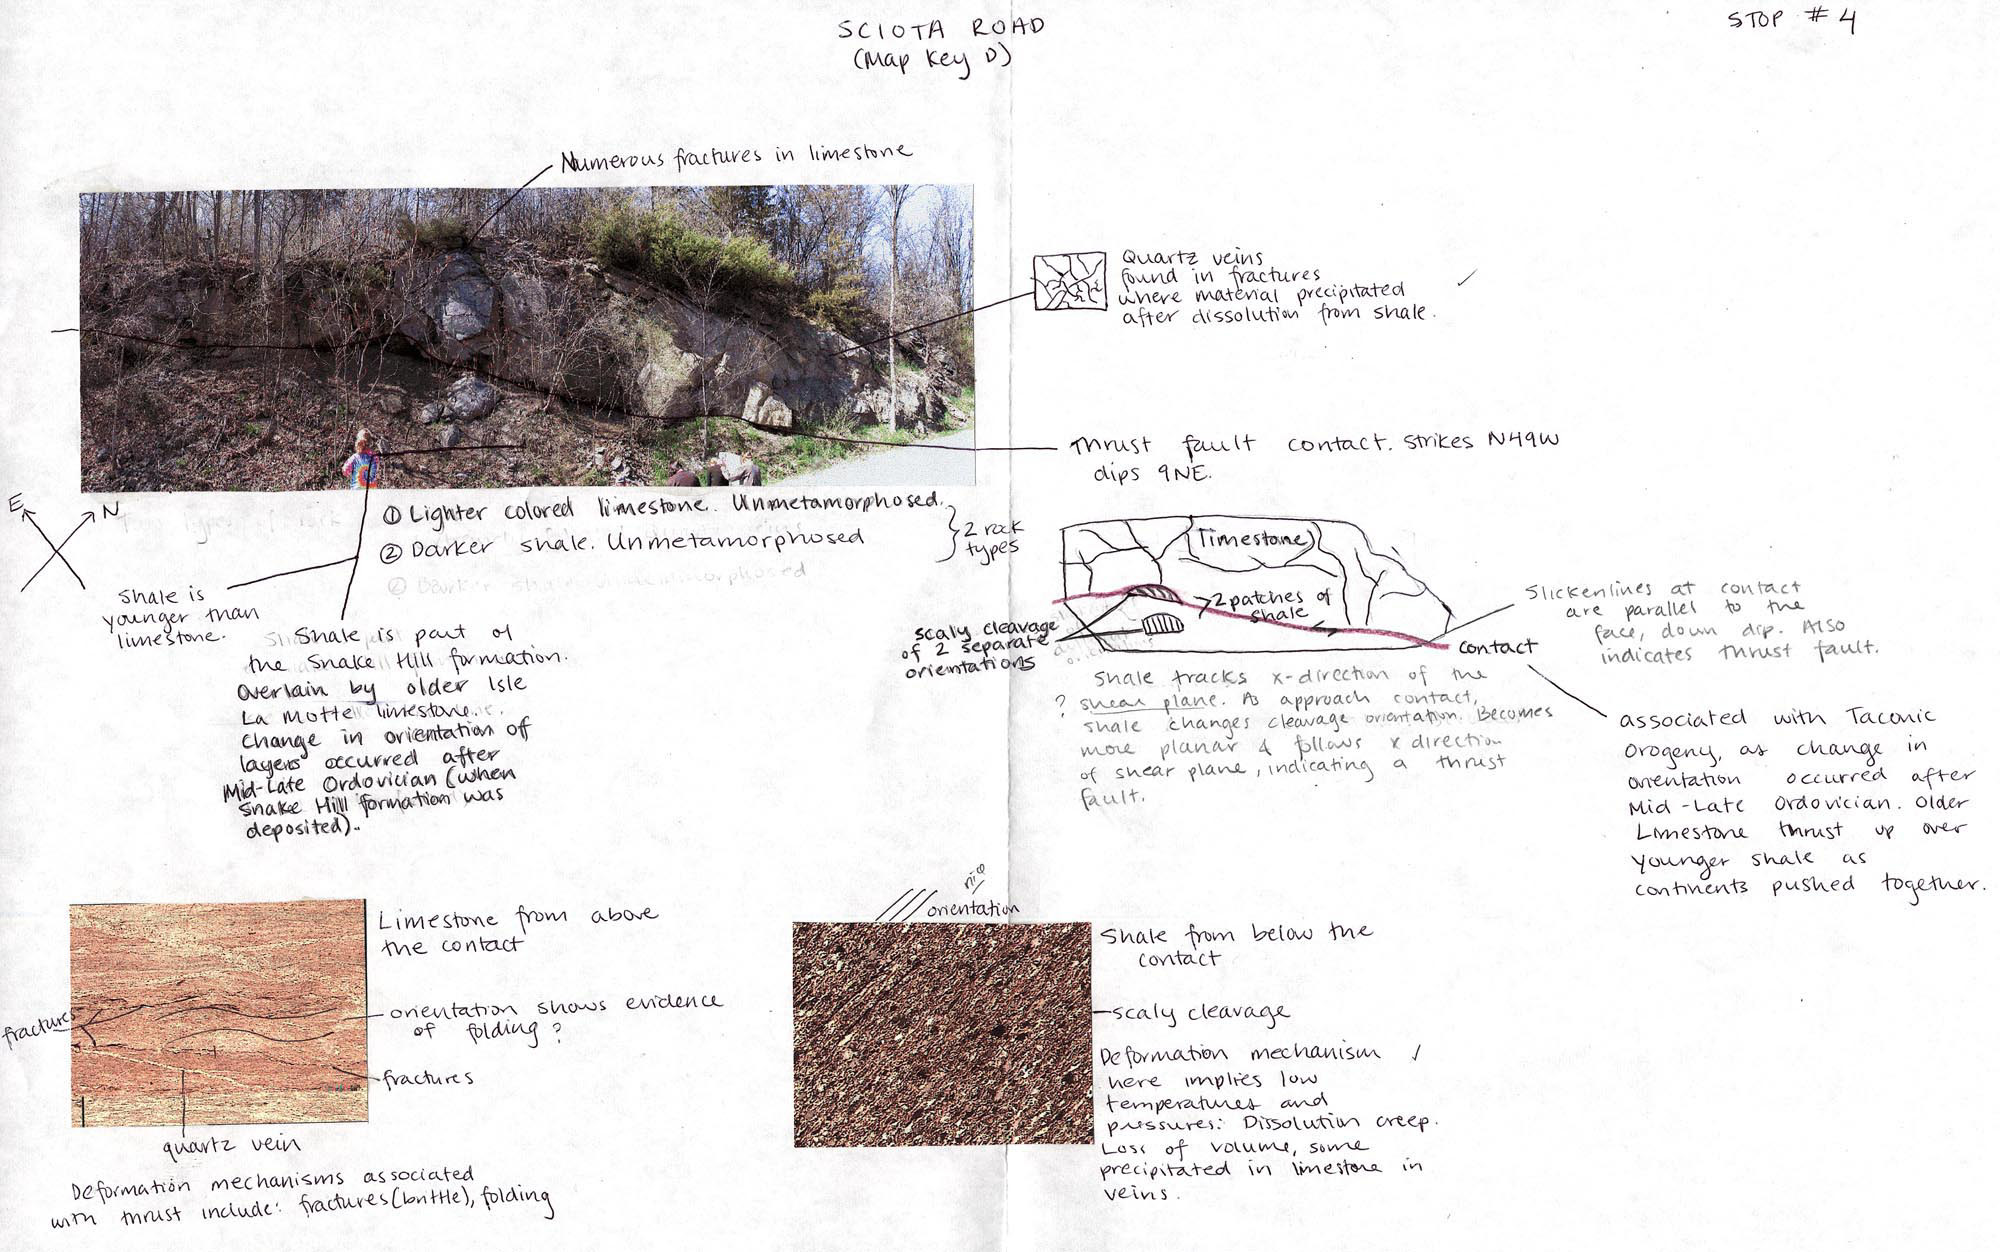 SCIOTA ROAD
(Map Key D)
STOP # 4
Numerous fractures in limestone
Quartz veins
found in fractures
where material precipitated
after dissolution from shale.
Thrust fault contact. Strikes N49W
dips 9NE.
E
N
① Lighter colored limestone. Unmetamorphosed.
② Darker shale. Unmetamorphosed
2 rock
types
Shale is
younger than
limestone.
Shale is part of
the Snake Hill formation.
Overlain by older Isle
La Motte limestone.
Change in orientation of
layers occurred after
Mid-Late Ordovician (when
Snake Hill formation was
deposited).
limestone
2 patches of
shale
scaly cleavage
of 2 separate
orientations
contact
Slickenlines at contact
are parallel to the
face, down dip. Also
indicates thrust fault.
Shale tracks x-direction of the
? shear plane. As approach contact,
shale changes cleavage orientation. Becomes
more planar & follows x direction
of shear plane, indicating a thrust
fault.
associated with Taconic
Orogeny, as change in
orientation occurred after
Mid-Late Ordovician. Older
Limestone thrust up over
younger shale as
continents pushed together.
Limestone from above
the contact
fractures
orientation shows evidence
of folding?
fractures
quartz vein
Deformation mechanisms associated
with thrust include: fractures (brittle), folding
orientation
Shale from below the
contact
scaly cleavage
Deformation mechanism
here implies low
temperatures and
pressures: Dissolution creep.
Loss of volume, some
precipitated in limestone in
veins.